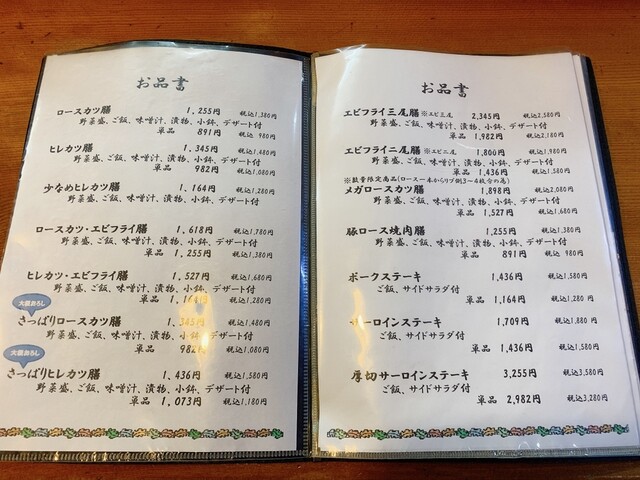 お品書
ロースカツ膳 1,255円 税込1,380円
野菜盛、ご飯、味噌汁、漬物、小鉢、デザート付
単品 891円 税込 980円
ヒレカツ膳 1,345円 税込1,480円
野菜盛、ご飯、味噌汁、漬物、小鉢、デザート付
単品 982円 税込1,080円
少なめヒレカツ膳 1,164円 税込1,280円
野菜盛、ご飯、味噌汁、漬物、小鉢、デザート付
ロースカツ・エビフライ膳 1,618円 税込1,780円
野菜盛、ご飯、味噌汁、漬物、小鉢、デザート付
単品 1,255円 税込1,380円
ヒレカツ・エビフライ膳 1,527円 税込1,680円
野菜盛、ご飯、味噌汁、漬物、小鉢、デザート付
単品 1,164円 税込1,280円
大根おろし
さっぱりロースカツ膳 1,345円 税込1,480円
野菜盛、ご飯、味噌汁、漬物、小鉢、デザート付
単品 982円 税込1,080円
大根おろし
さっぱりヒレカツ膳 1,436円 税込1,580円
野菜盛、ご飯、味噌汁、漬物、小鉢、デザート付
単品 1,073円 税込1,180円
お品書
エビフライ三尾膳 ※エビ三尾 2,345円 税込2,580円
野菜盛、ご飯、味噌汁、漬物、小鉢、デザート付
単品 1,982円 税込2,180円
エビフライ二尾膳 ※エビ二尾 1,800円 税込1,980円
野菜盛、ご飯、味噌汁、漬物、小鉢、デザート付
単品 1,436円 税込1,580円
※数量限定商品(ロース一本からリブ側3～4枚分の為)
メガロースカツ膳 1,898円 税込2,080円
野菜盛、ご飯、味噌汁、漬物、小鉢、デザート付
単品 1,527円 税込1,680円
豚ロース焼肉膳 1,255円 税込1,380円
野菜盛、ご飯、味噌汁、漬物、小鉢、デザート付
単品 891円 税込 980円
ポークステーキ 1,436円 税込1,580円
ご飯、サイドサラダ付
単品 1,164円 税込1,280 円
サーロインステーキ 1,709円 税込1,880 円
ご飯、サイドサラダ付
単品 1,436円 税込1,580円
厚切サーロインステーキ 3,255円 税込3,580円
ご飯、サイドサラダ付
単品 2,982円 税込3,280円